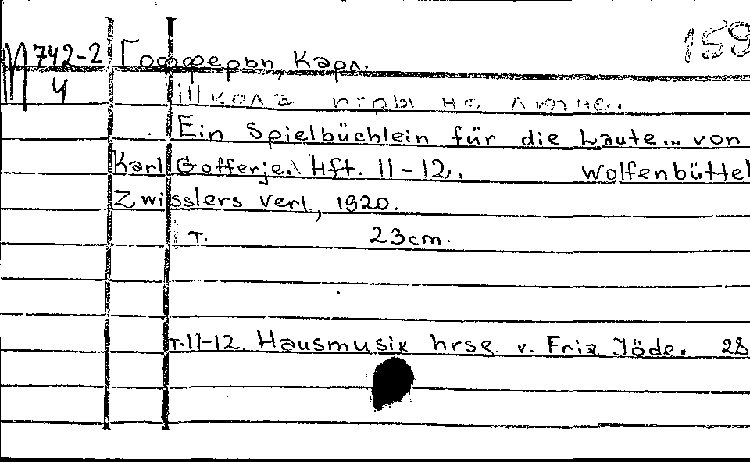 M 742-2
4
159
Гоффери, Карл.
Школа игры на лютне.
Ein Spielbüchlein für die Laute... von
Karl Gofferje. Hft. 11-12. Wolfenbüttel
Zwisslers Verl, 1920.
1 т. 23cm.
т.11-12. Hausmusik hrsg v. Friz Jöde. 28